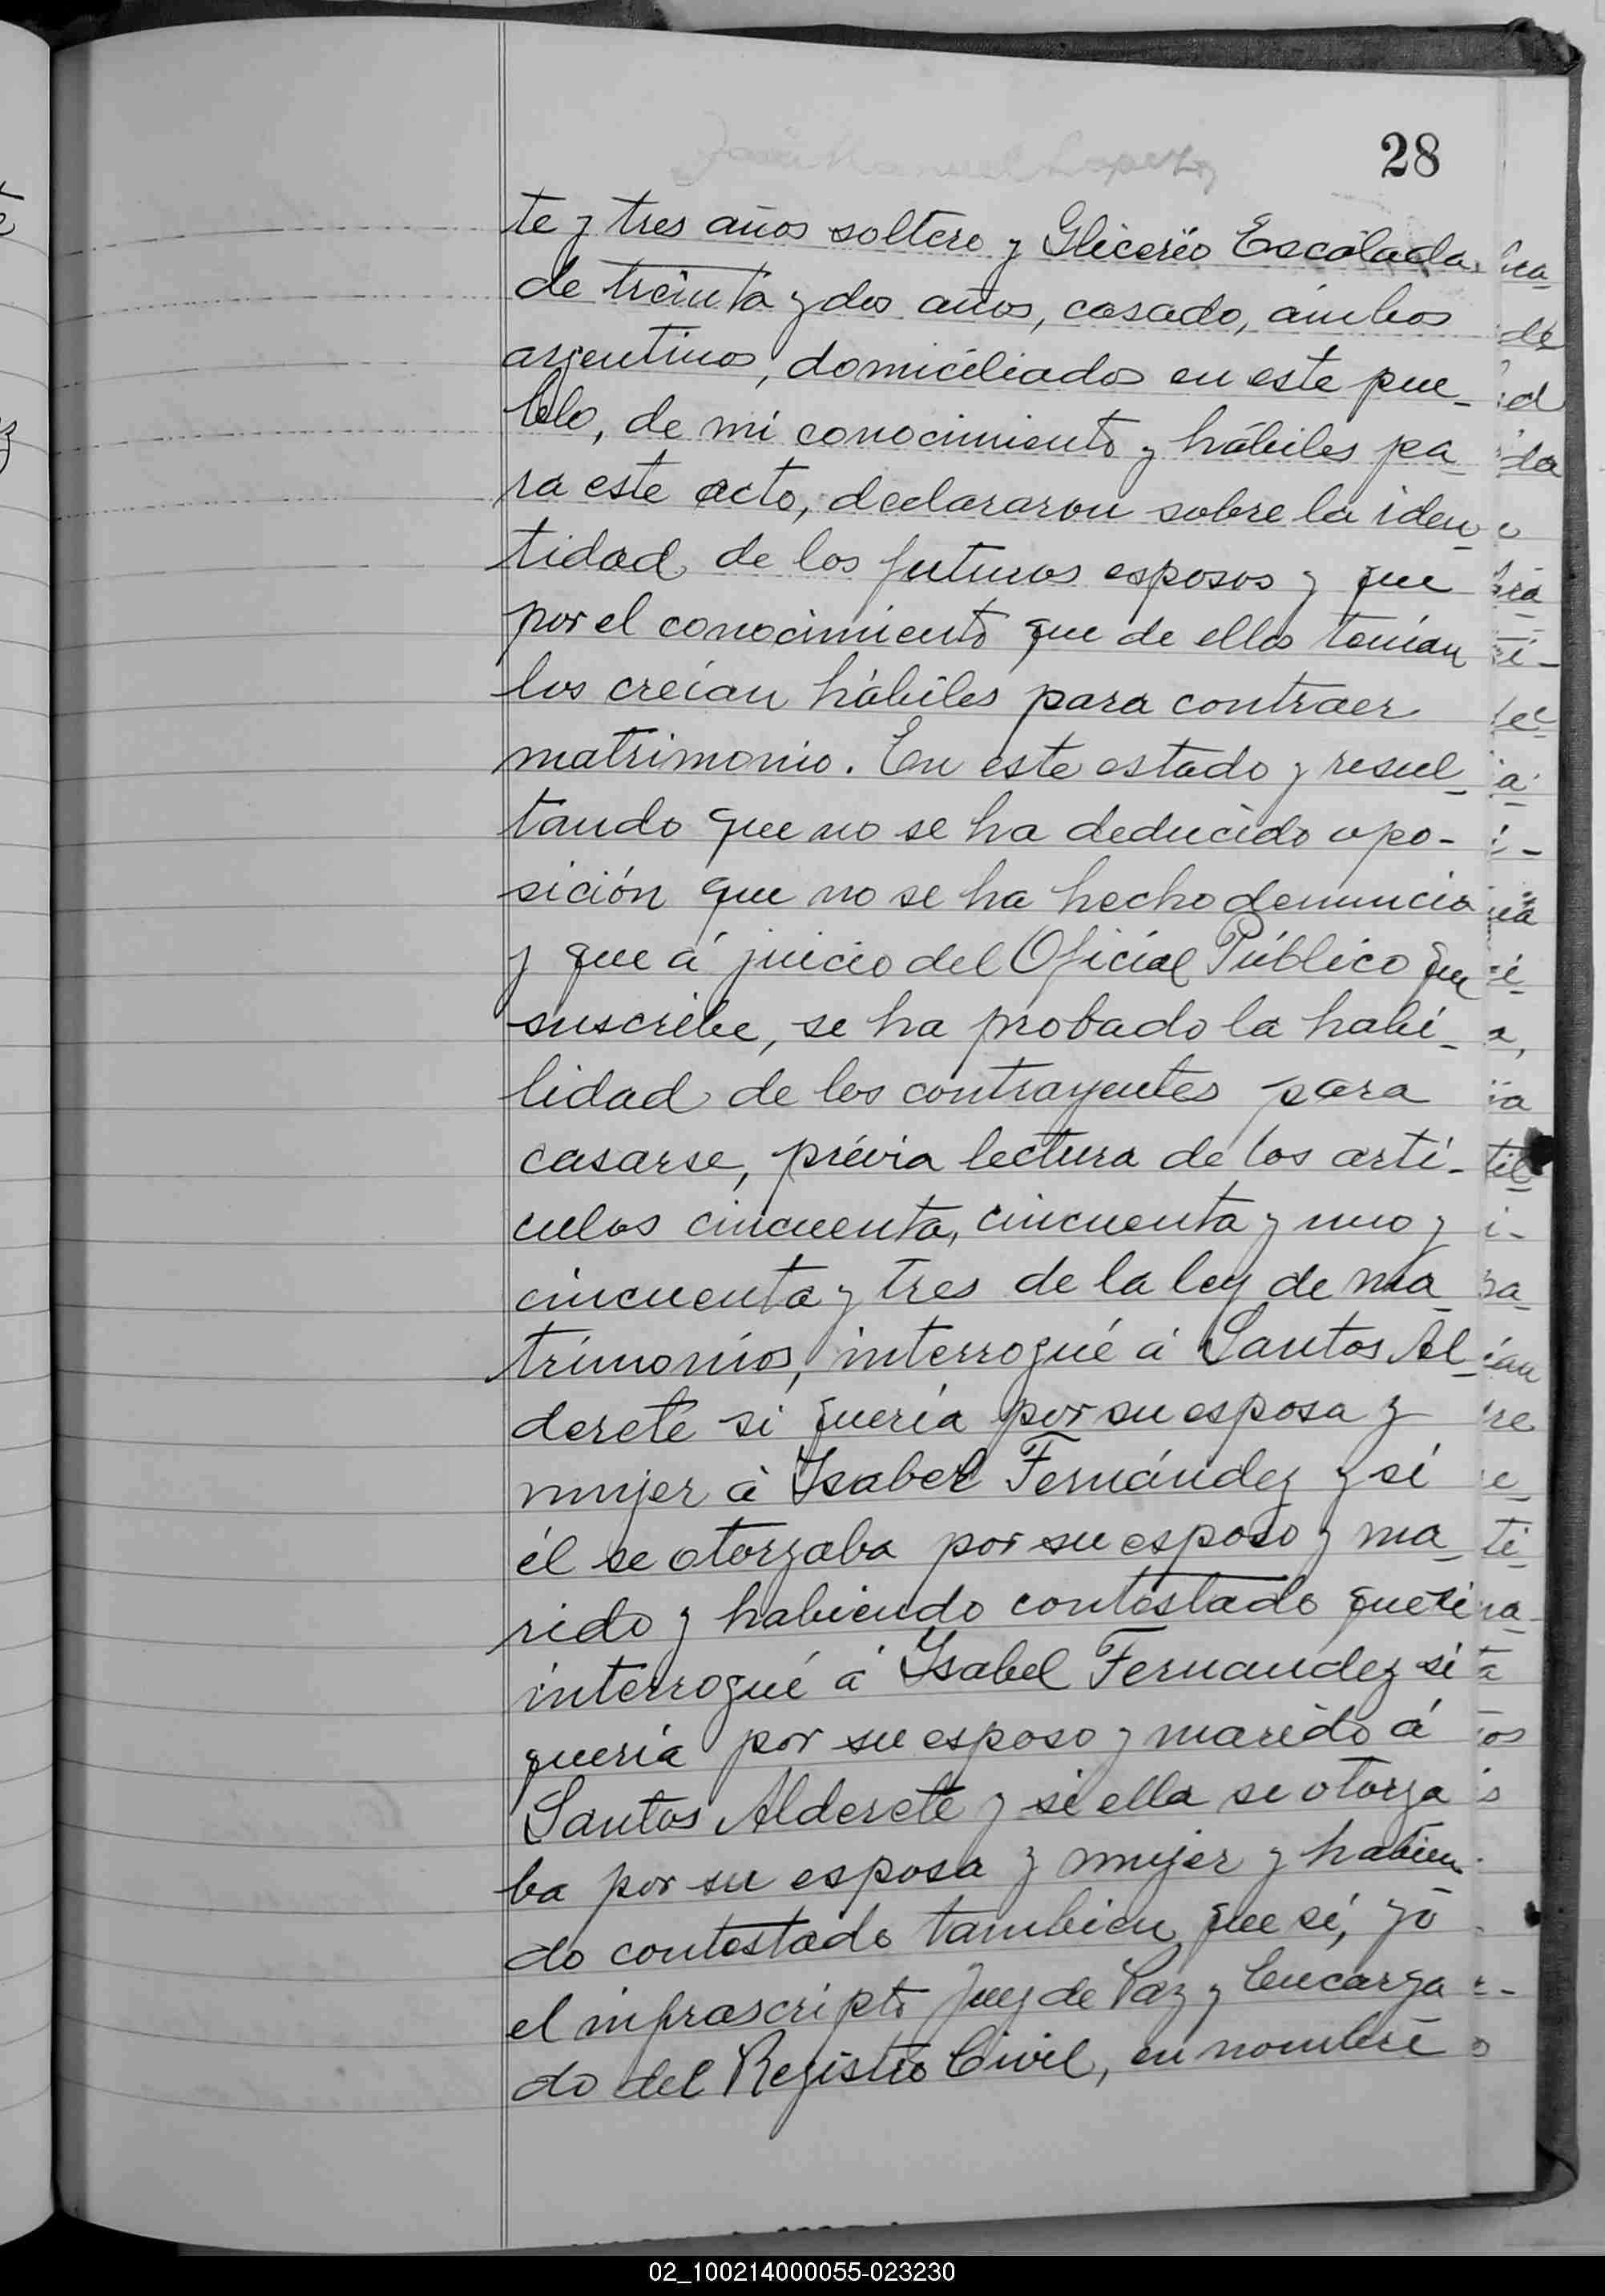 28
te y tres años soltero y Glicerio Escalada
de treinta y dos años, casado, ámbos
argentinos, domiciliados en este pue-
blo, de mi conocimiento y hábiles pa-
ra este acto, declararon sobre la iden-
tidad de los futuros esposos y que
por el conocimiento que de ellos tenían
los creían hábiles para contraer
matrimonio. En este estado y resul-
tando que no se ha deducido opo-
sición que no se ha hecho denuncia
y que á juicio del Oficial Público que
suscribe, se ha probado la habi-
lidad de los contrayentes para
casarse, prévia lectura de los artí-
culos cincuenta, cincuenta y uno y
cincuenta y tres de la ley de ma-
trimonios, interrogué á Santos Al-
derete si quería por su esposa y
mujer á Isabel Fernández y si
él se otorgaba por su esposo y ma-
rido y habiendo contestado que si
interrogué á Isabel Fernandez si
quería por su esposo y marido á
Santos Alderete y si ella se otorga
ba por su esposa y mujer y habien-
do contestado tambien que sí, yo
el infrascripto Juez de Paz y Encarga
do del Registro Civil, en nombre
02_100214000055-023230